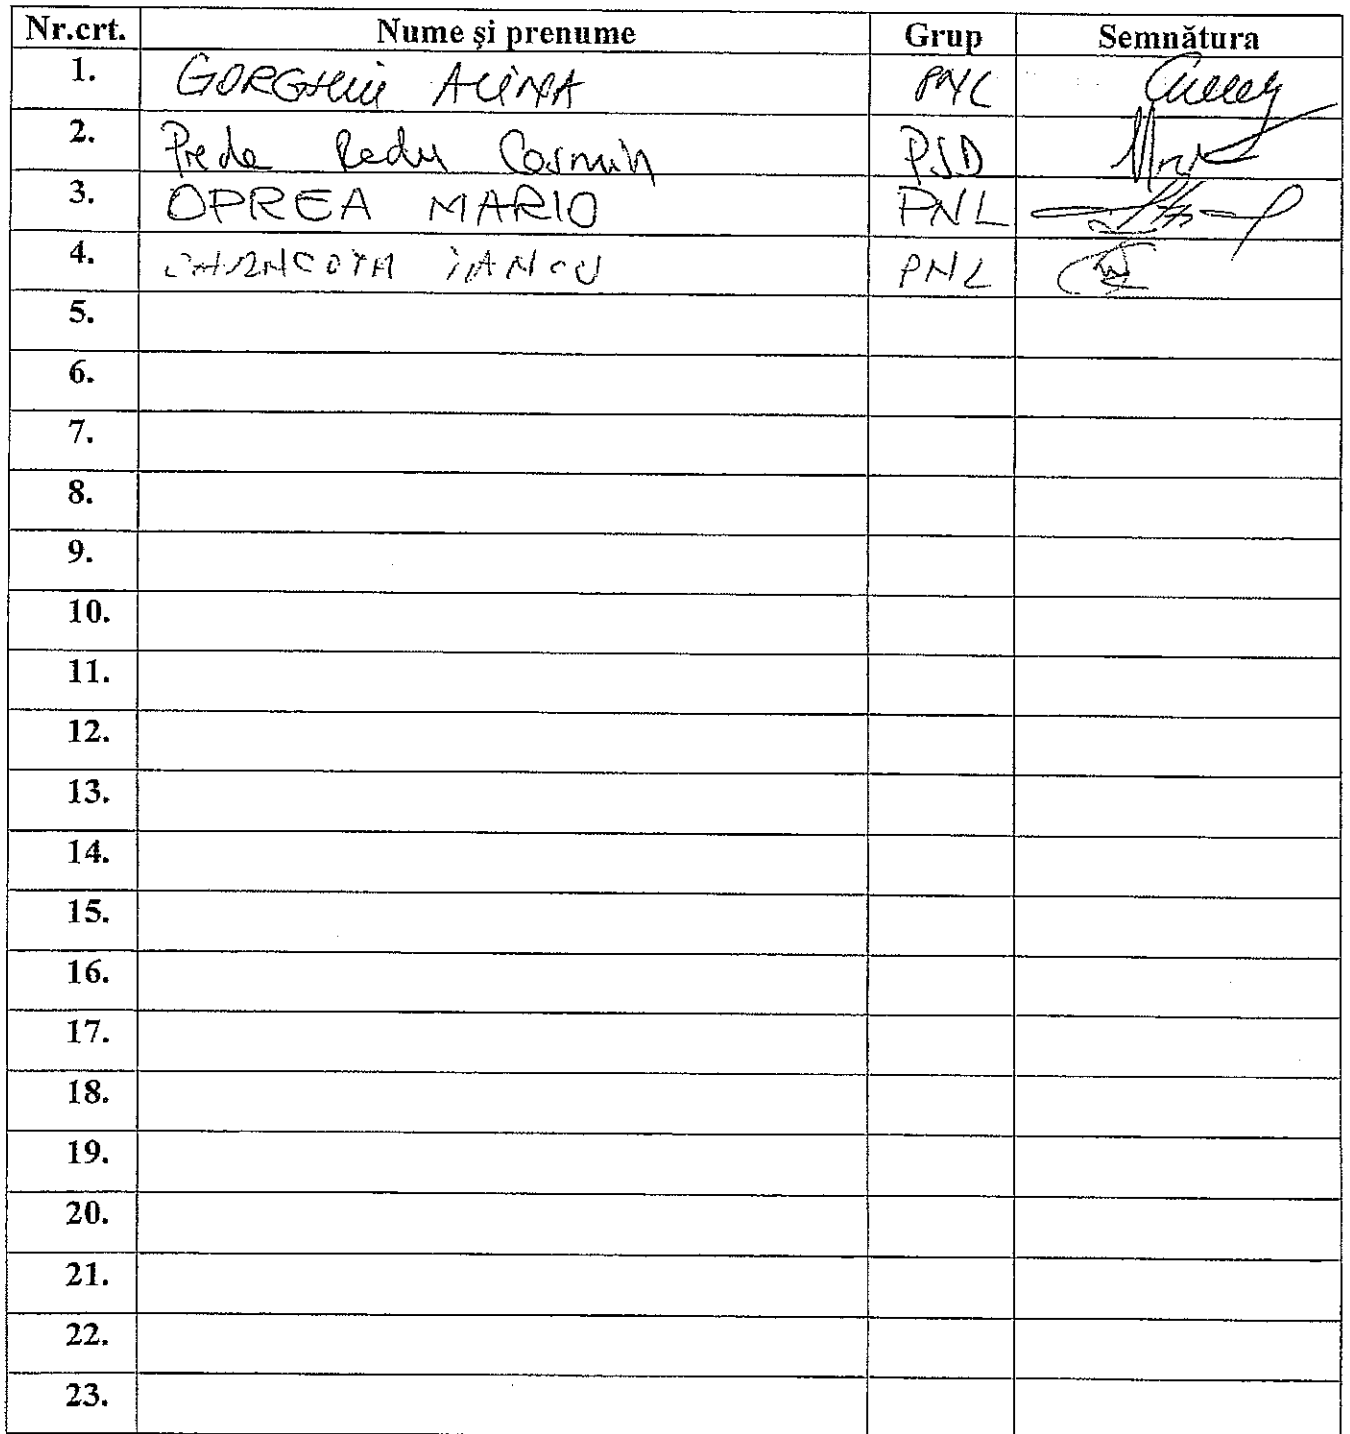 Nr.crt. Nume și prenume Grup Semnătura
1. GORGHIU ALINA PNL
2. Preda Radu Cosmin PSD
3. OPREA MARIO PNL
4. IANCU PNL
5.
6.
7.
8.
9.
10.
11.
12.
13.
14.
15.
16.
17.
18.
19.
20.
21.
22.
23.